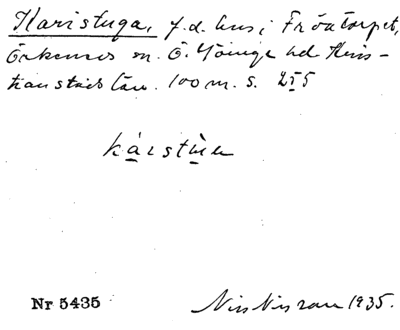 Karistuga, f.d. hus i Fröatorpet,
Örkeneds sn. Ö. Göinge hd Kris-
tianstads län. 100 m. S. 255
Nr 5435 Nils Nilsson 1935.